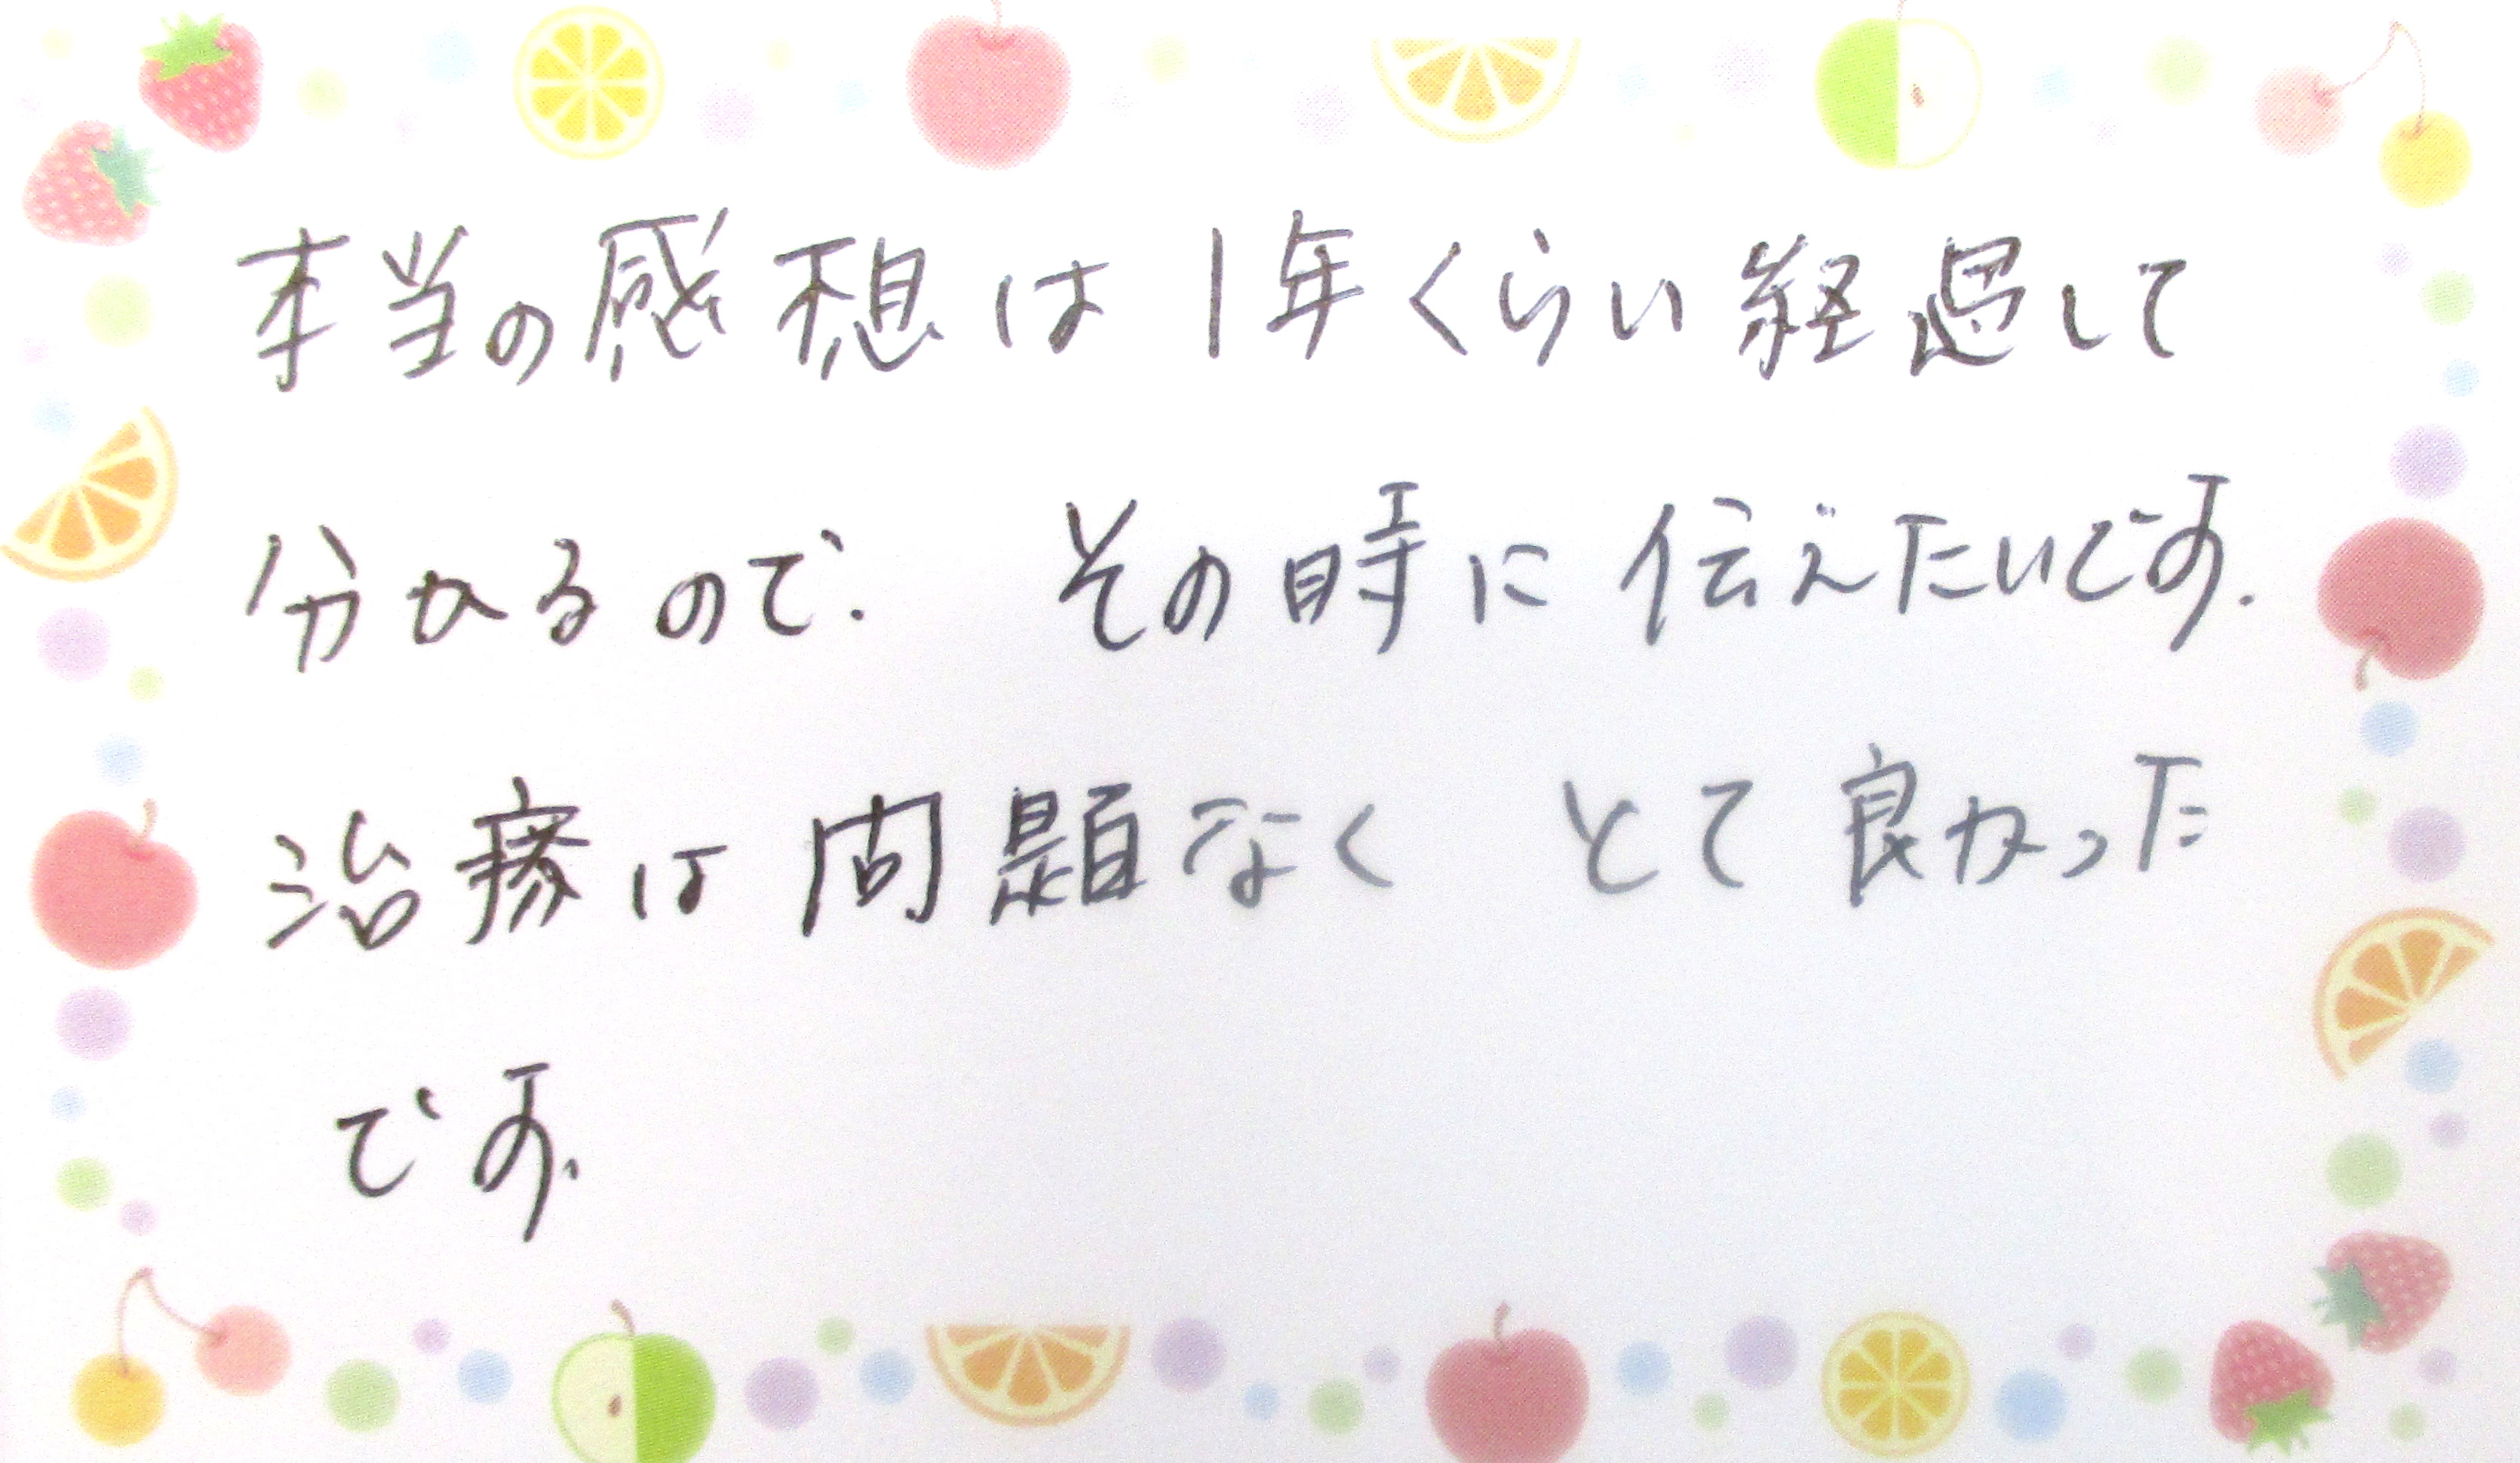 本当の感想は1年くらい経過して
分かるので、その時に伝えたいです。
治療は問題なく とて良かった
です。